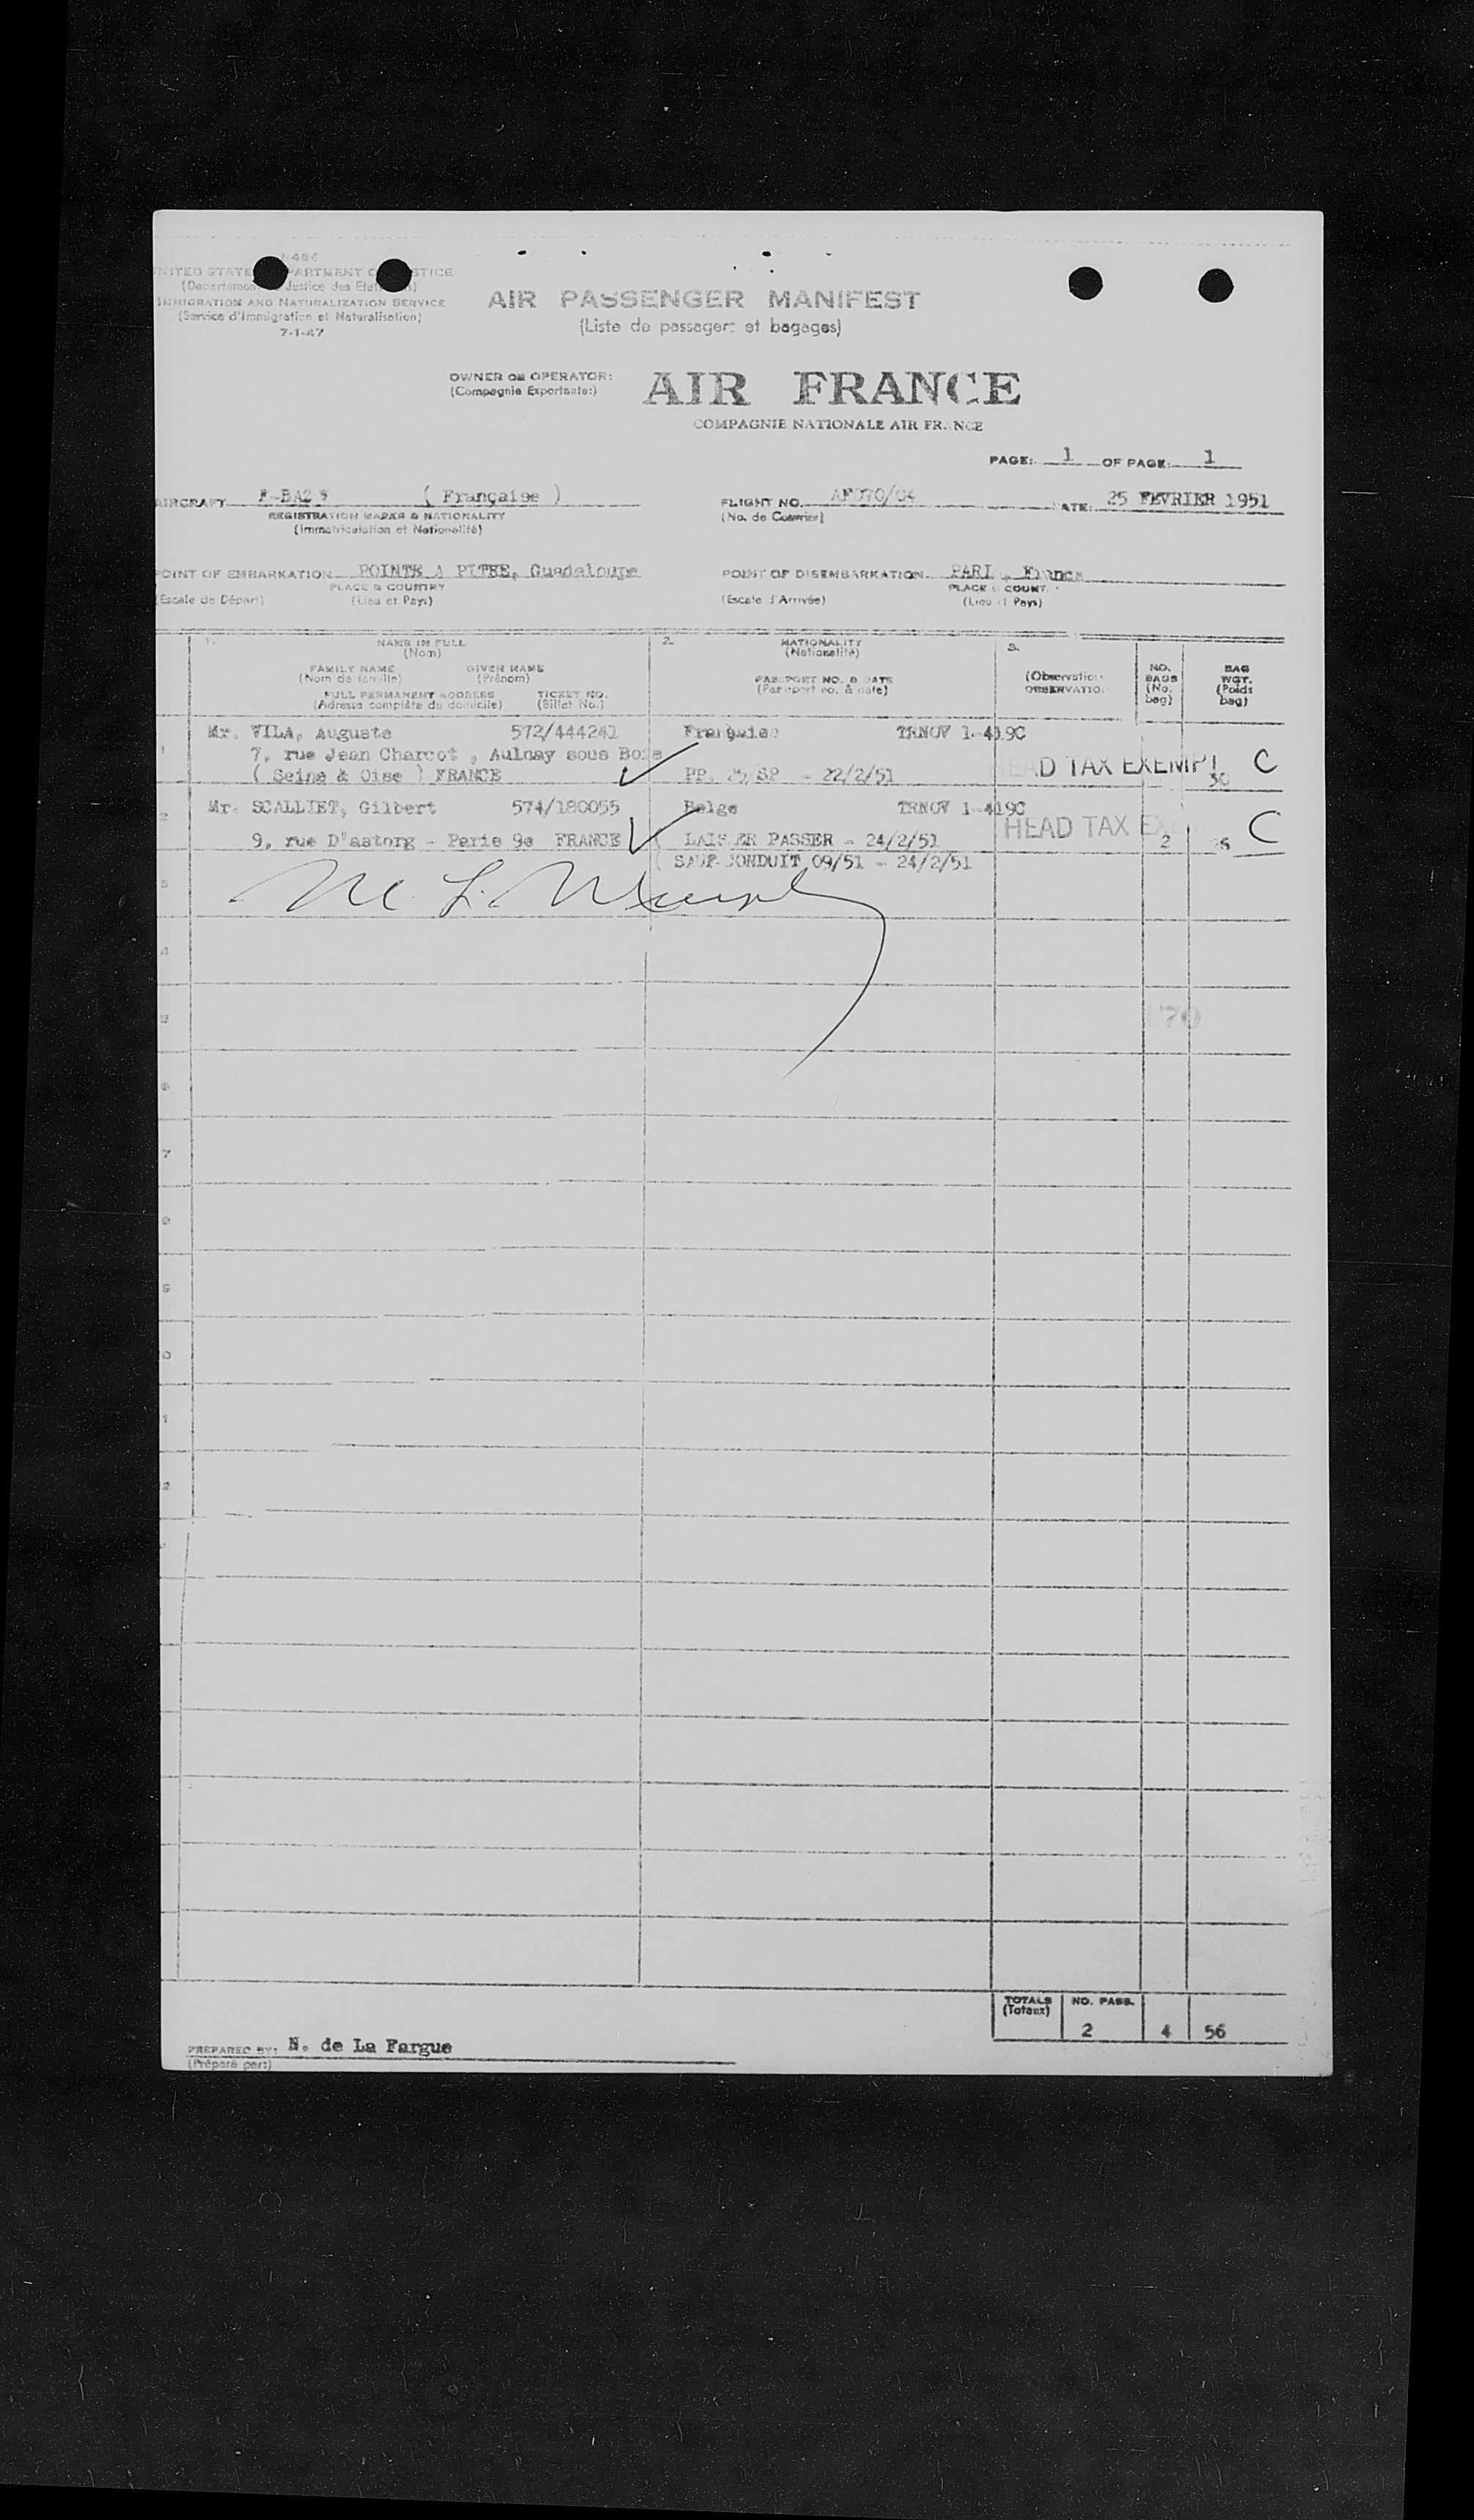 AIR PASSENGER MANIFEST
(Liste de passagers et bagages)
IMMIGRATION AND NATURALIZATION SERVICE
(Service d'Immigration et Naturalisation)
7-1-47
OWNER OR OPERATOR: AIR FRANCE
(Compagnie Exportante:)
COMPAGNIE NATIONALE AIR FRANCE
PAGE: 1 OF PAGE: 1
AIRCRAFT ( Française ) FLIGHT NO. AF070/04 DATE: 25 FEVRIER 1951
REGISTRATION MARKS & NATIONALITY (No. de Courrier)
(Immatriculation et Nationalité)
POINT OF EMBARKATION POINTE A PITRE, Guadeloupe POINT OF DISEMBARKATION PARI , France
PLACE & COUNTRY PLACE & COUNT
(Escale de Départ) (Lieu et Pays) (Escale d'Arrivée) (Lieu et Pays)
1. NAME IN FULL 2. NATIONALITY 3.
(Nom) (Nationalité)
FAMILY NAME GIVEN NAME NO. BAG
(Nom de famille) (Prénom) PASSPORT NO. & DATE (Observation BAGS WGT.
FULL PERMANENT ADDRESS TICKET NO. (Passport no. & date) OBSERVATION (No. (Poids
(Adresse complète du domicile) (Billet No.) bag) bag)
1 Mr. VILA, Auguste 572/444241 Française TRNOV 1-419C
7, rue Jean Charcot , Aulnay sous Bois
( Seine & Oise ) FRANCE PP. 25/SP - 22/2/51 HEAD TAX EXEMPT 30 C
2 Mr. SCALLIET, Gilbert 574/180055 Belge TRNOV 1-419C
9, rue D'astorg - Paris 9e FRANCE LAISSER PASSER - 24/2/51 HEAD TAX EXE 2 26 C
SAUF-CONDUIT 09/51 - 24/2/51
3
4
5
6
7
8
9
TOTALS NO. PASS.
(Totaux) 2 4 56
PREPARED BY: N. de La Fargue
(Préparé par:)